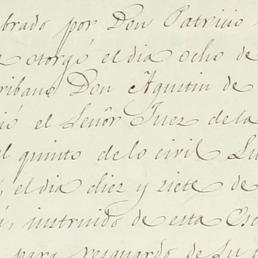 brado por Don Patricio
otorgó el dia ocho de
cribano Don Agustin de
ió el Señor Juez de la
l quinto de lo civil Lu
, el dia diez y siete de
á, instruido de esta Esc
para resguardo de su